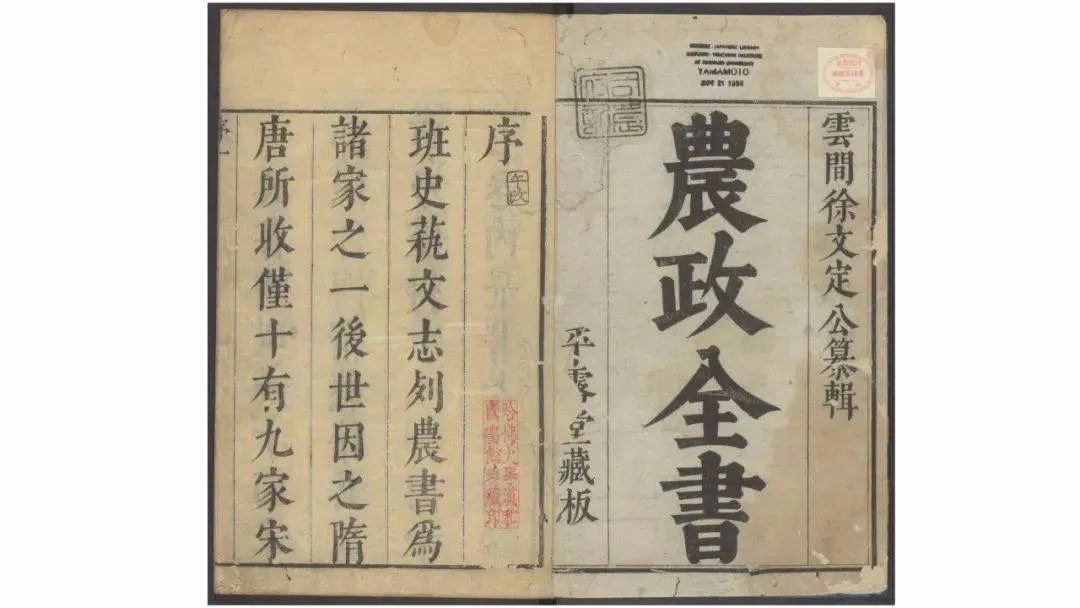 雲間徐文定公纂輯
農政全書
平露堂藏板
CHINESE-JAPANESE LIBRARY
HARVARD-YENCHING INSTITUTE
AT HARVARD UNIVERSITY
YAMAMOTO
序
班史蓺文志列農書爲
諸家之一後世因之隋
唐所收僅十有九家宋
哈佛大學漢和
圖書館珍藏印